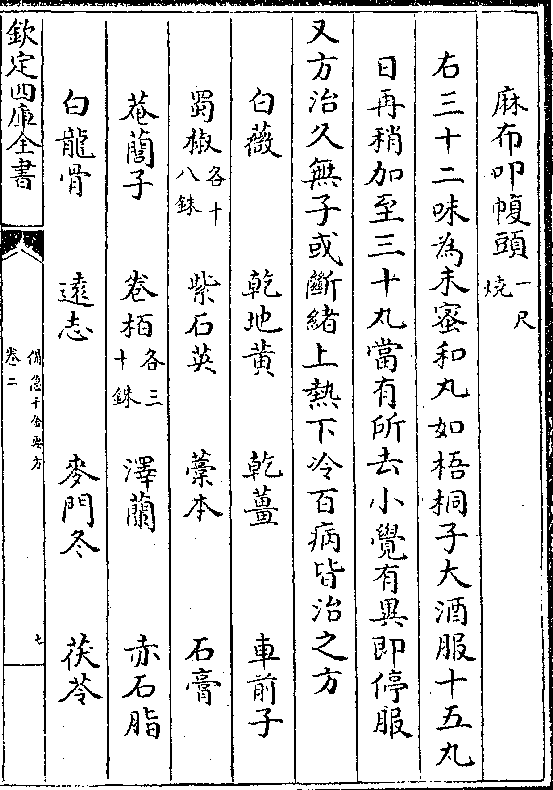 麻布叩幞頭一尺燒
右三十二味為末蜜和丸如梧桐子大酒服十五丸
日再稍加至三十丸當有所去小覺有異即停服
又方治久無子或斷緒上熱下冷百病皆治之方
白薇 乾地黃 乾薑 車前子
蜀椒各十八銖 紫石英 藁本 石膏
菴䕡子 卷栢各三十銖 澤蘭 赤石脂
白龍骨 遠志 麥門冬 茯苓
欽定四庫全書
備急千金要方
卷二
七